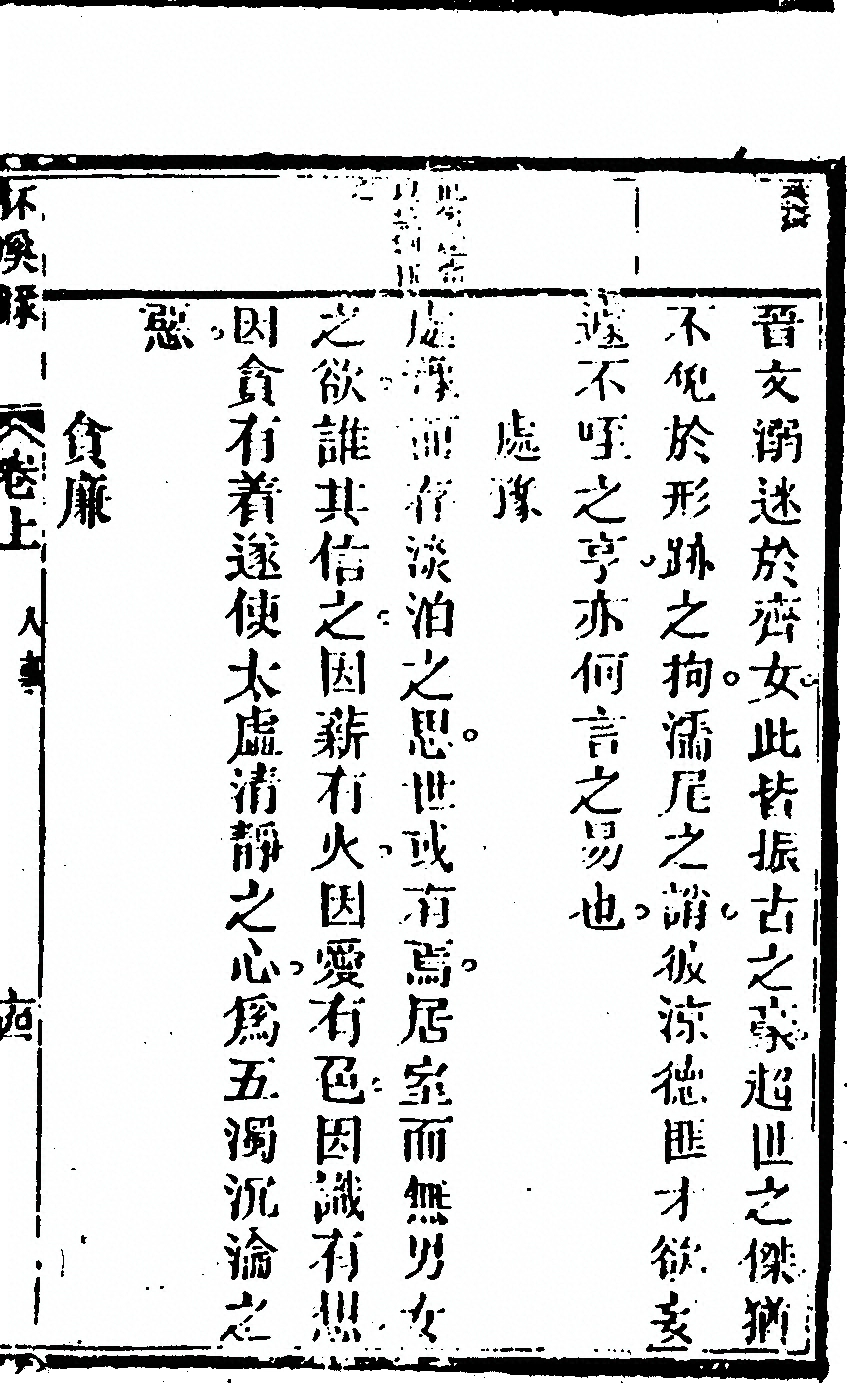 晉文溺迷於齊女此皆振古之豪超世之傑猶
不免於形跡之拘濡尾之誚彼涼德匪才欲亥
遽不咥之亨亦何言之易也
處豫
處豫而存淡泊之思世或有焉居室而無男女
之欲誰其信之因薪有火因愛有色因識有想
因貪有着遂使太虛清靜之心爲五濁沉淪之
慾
貪廉
卷上
人事